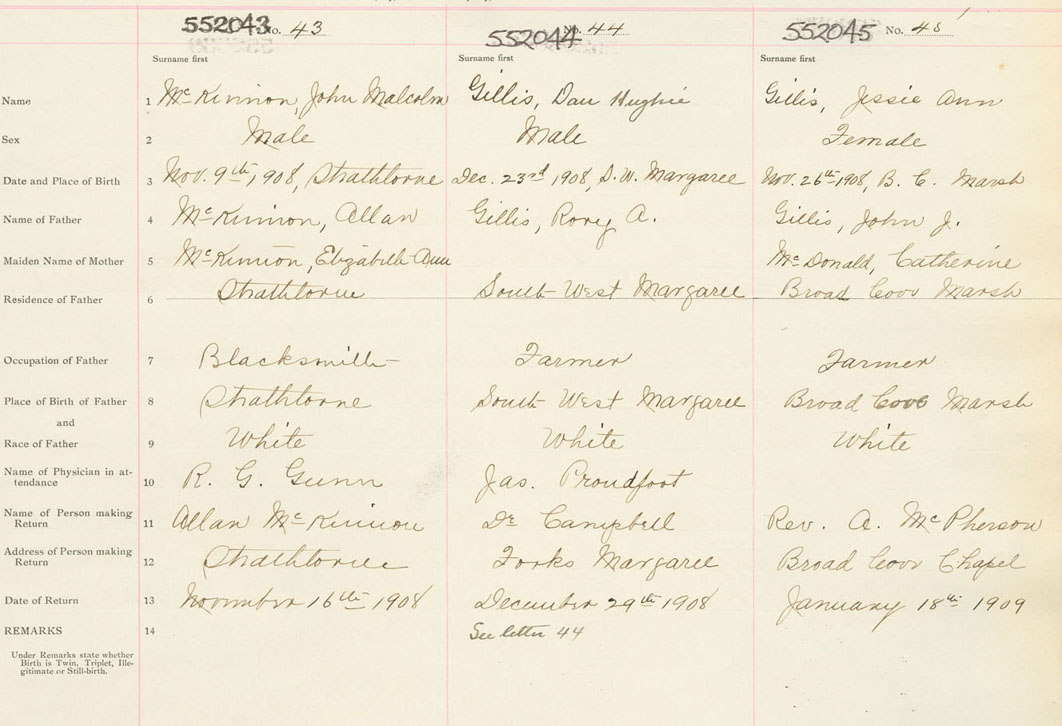 552043 No. 43 552044 No. 44 552045 No. 45
Surname first Surname first Surname first
Name 1 McKinnon, John Malcolm Gillis, Dan Hughie Gillis, Jessie Ann
Sex 2 Male Male Female
Date and Place of Birth 3 Nov. 9th, 1908, Strathlorne Dec. 23rd 1908, S. W. Margaree Nov. 26th 1908, B. C. Marsh
Name of Father 4 McKinnon, Allan Gillis, Rory A. Gillis, John J.
Maiden Name of Mother 5 McKinnon, Elizabeth Ann McDonald, Catherine
Residence of Father 6 Strathlorne South West Margaree Broad Cove Marsh
Occupation of Father 7 Blacksmith Farmer Farmer
Place of Birth of Father 8 Strathlorne South West Margaree Broad Cove Marsh
and
Race of Father 9 White White White
Name of Physician in at-
tendance 10 R. G. Gunn Jas. Proudfoot
Name of Person making
Return 11 Allan McKinnon Dr Campbell Rev. A. McPherson
Address of Person making
Return 12 Strathlorne Forks Margaree Broad Cove Chapel
Date of Return 13 November 16th 1908 December 29th 1908 January 18th 1909
REMARKS 14 See letter 44
Under Remarks state whether
Birth is Twin, Triplet, Ille-
gitimate or Still-birth.